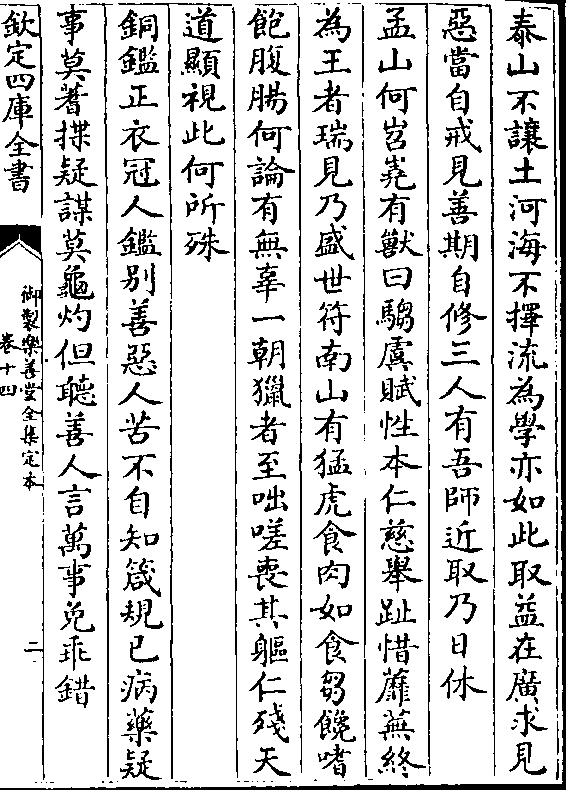 泰山不讓土河海不擇流為學亦如此取益在廣求見
惡當自戒見善期自修三人有吾師近取乃日休
孟山何岧嶤有獸曰騶虞賦性本仁慈舉趾惜蘼蕪終
為王者瑞見乃盛世符南山有猛虎食肉如食芻饞嗜
飽腹腸何論有無辜一朝獵者至咄嗟喪其軀仁殘天
道顯視此何所殊
銅鑑正衣冠人鑑別善惡人苦不自知箴規已病藥疑
事莫蓍揲疑謀莫龜灼但聽善人言萬事免乖錯
欽定四庫全書
御製樂善堂全集定本
卷十四
二